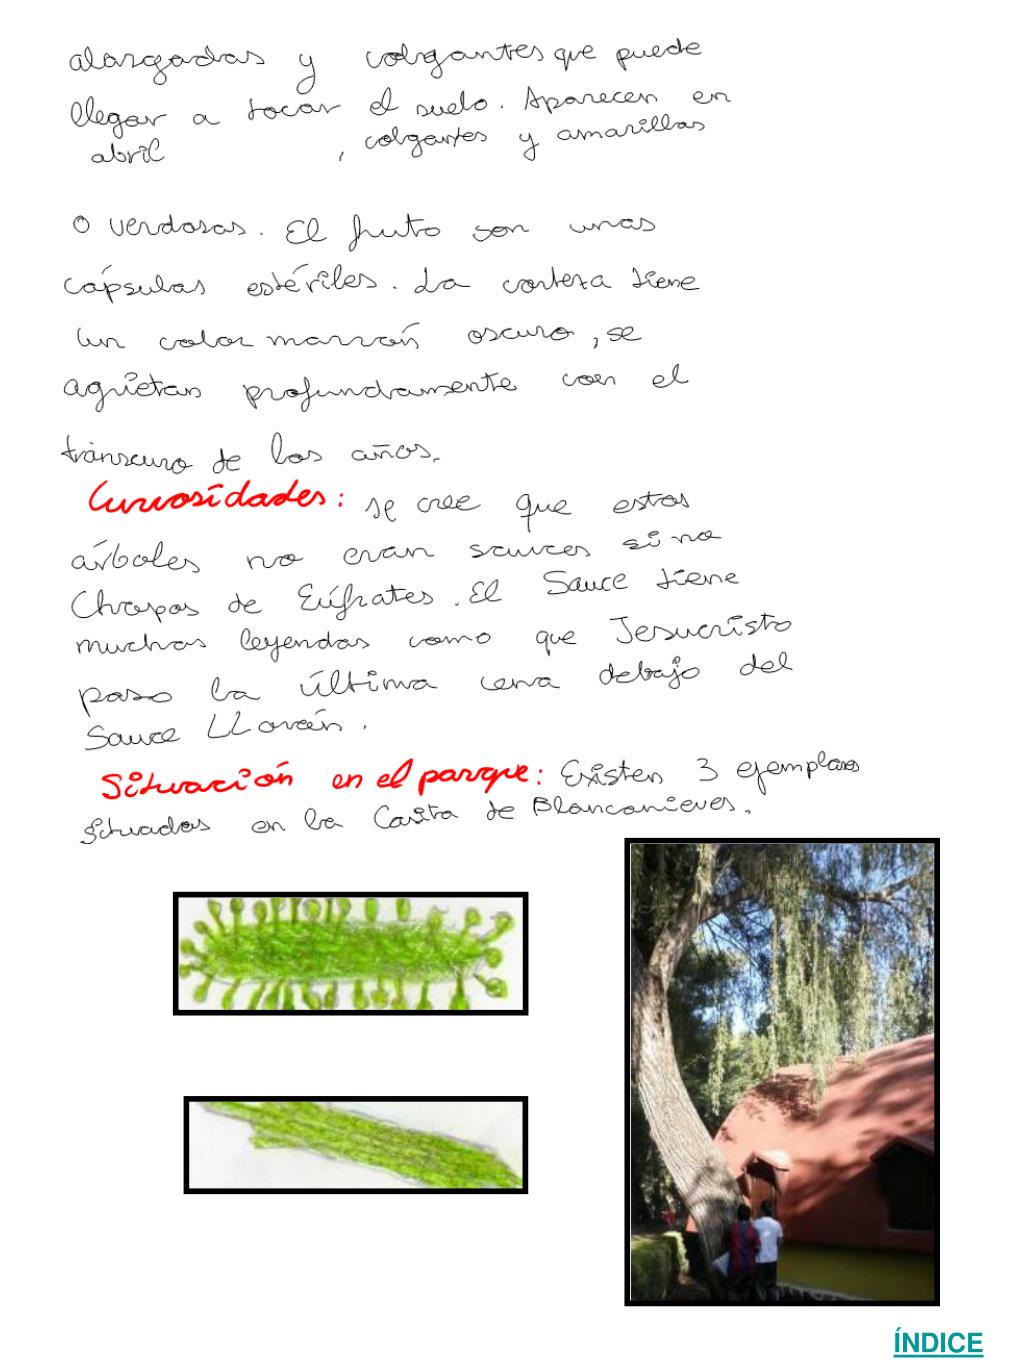 alargadas y colgantes que puede
llegar a tocar el suelo. Aparecen en
abril , colgantes y amarillas
o verdosas. El fruto son unas
cápsulas estériles. La corteza tiene
un color marrón oscuro, se
agrietan profundamente con el
transcurso de los años.
Curiosidades: se cree que estos
árboles no eran sauces si no
Chopos de Eúfrates. El Sauce tiene
muchas leyendas como que Jesucristo
paso la última cena debajo del
Sauce LLorón.
Situación en el parque: Existen 3 ejemplares
situados en la Casita de Blancanieves.
ÍNDICE